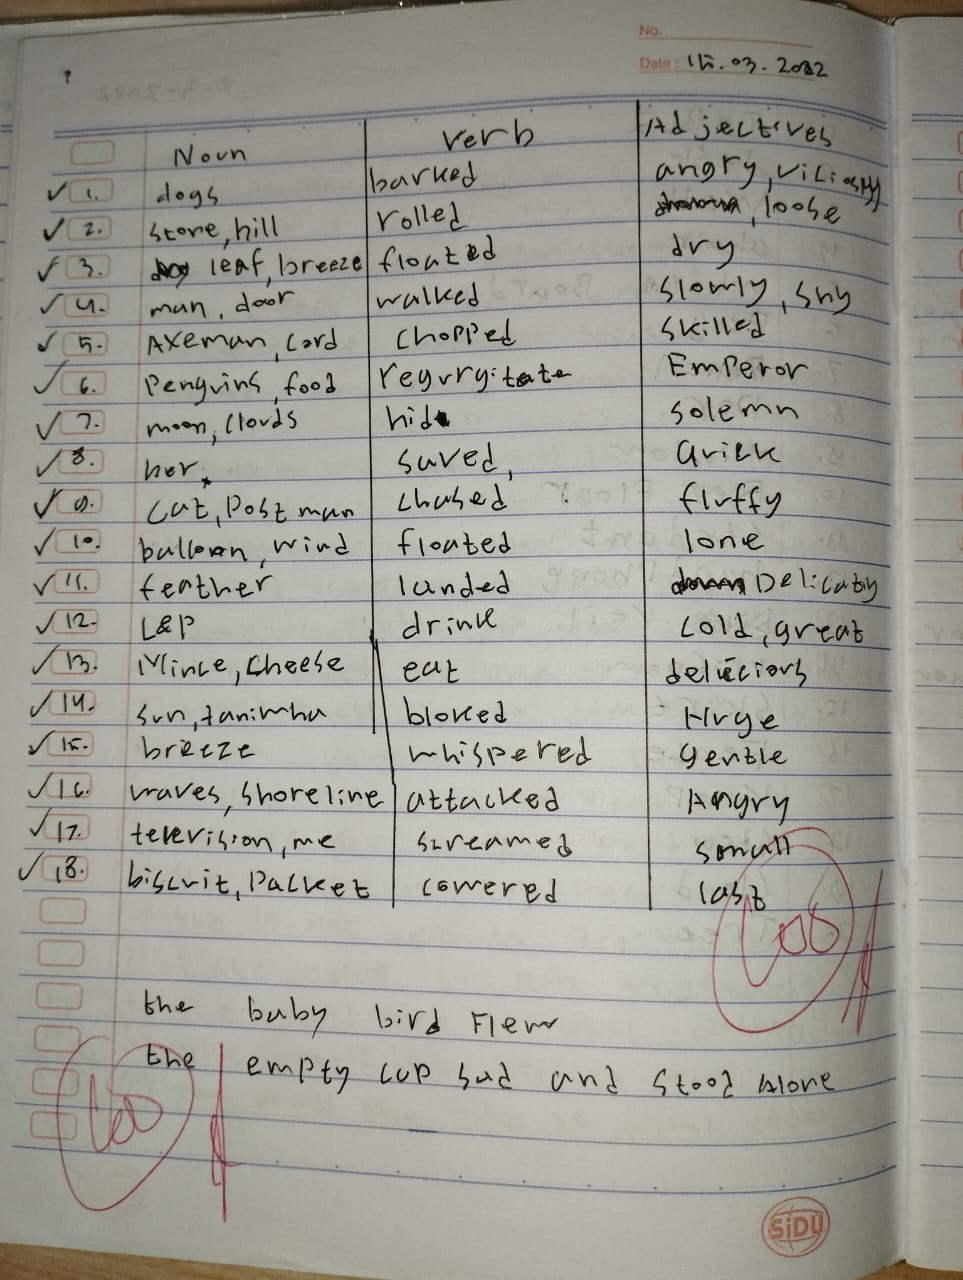 No.
Date: 15.03.2022
Noun verb Adjectives
1. dogs barked angry, viliosly
2. stone, hill rolled , loose
3. leaf, breeze floated dry
4. man, door walked slowly, shy
5. AXeman, Cord chopped skilled
6. Penguins, food regurgitate Emperor
7. moon, Clouds hid solemn
8. her. saved, quick
9. cat, Post man chased fluffy
10. balloon, wind floated lone
11. feather landed
12. L&P drink cold, great
13. Mince, Cheese eat deliécious
14. sun, tanimha bloked Huge
15. breeze whispered gentle
16. waves, shoreline attacked Angry
17. television, me screamed small
18. biscuit, Packet cowered last
100
the baby bird Flew
the empty cup sad and stood alone
100
SiDU